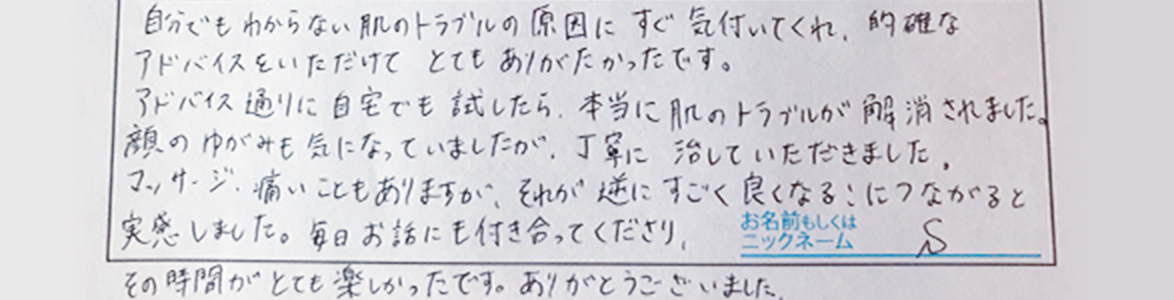 自分でもわからない肌のトラブルの原因にすぐ気付いてくれ、的確な
アドバイスをいただけて とてもありがたかったです。
アドバイス通りに自宅でも試したら、本当に肌のトラブルが解消されました。
顔のゆがみも気になっていましたが、丁寧に 治していただきました。
マッサージ、痛いこともありますが、それが逆にすごく良くなることにつながると
実感しました。毎日お話にも付き合ってくださり、
お名前もしくは
ニックネーム S
その時間がとても楽しかったです。ありがとうございました。